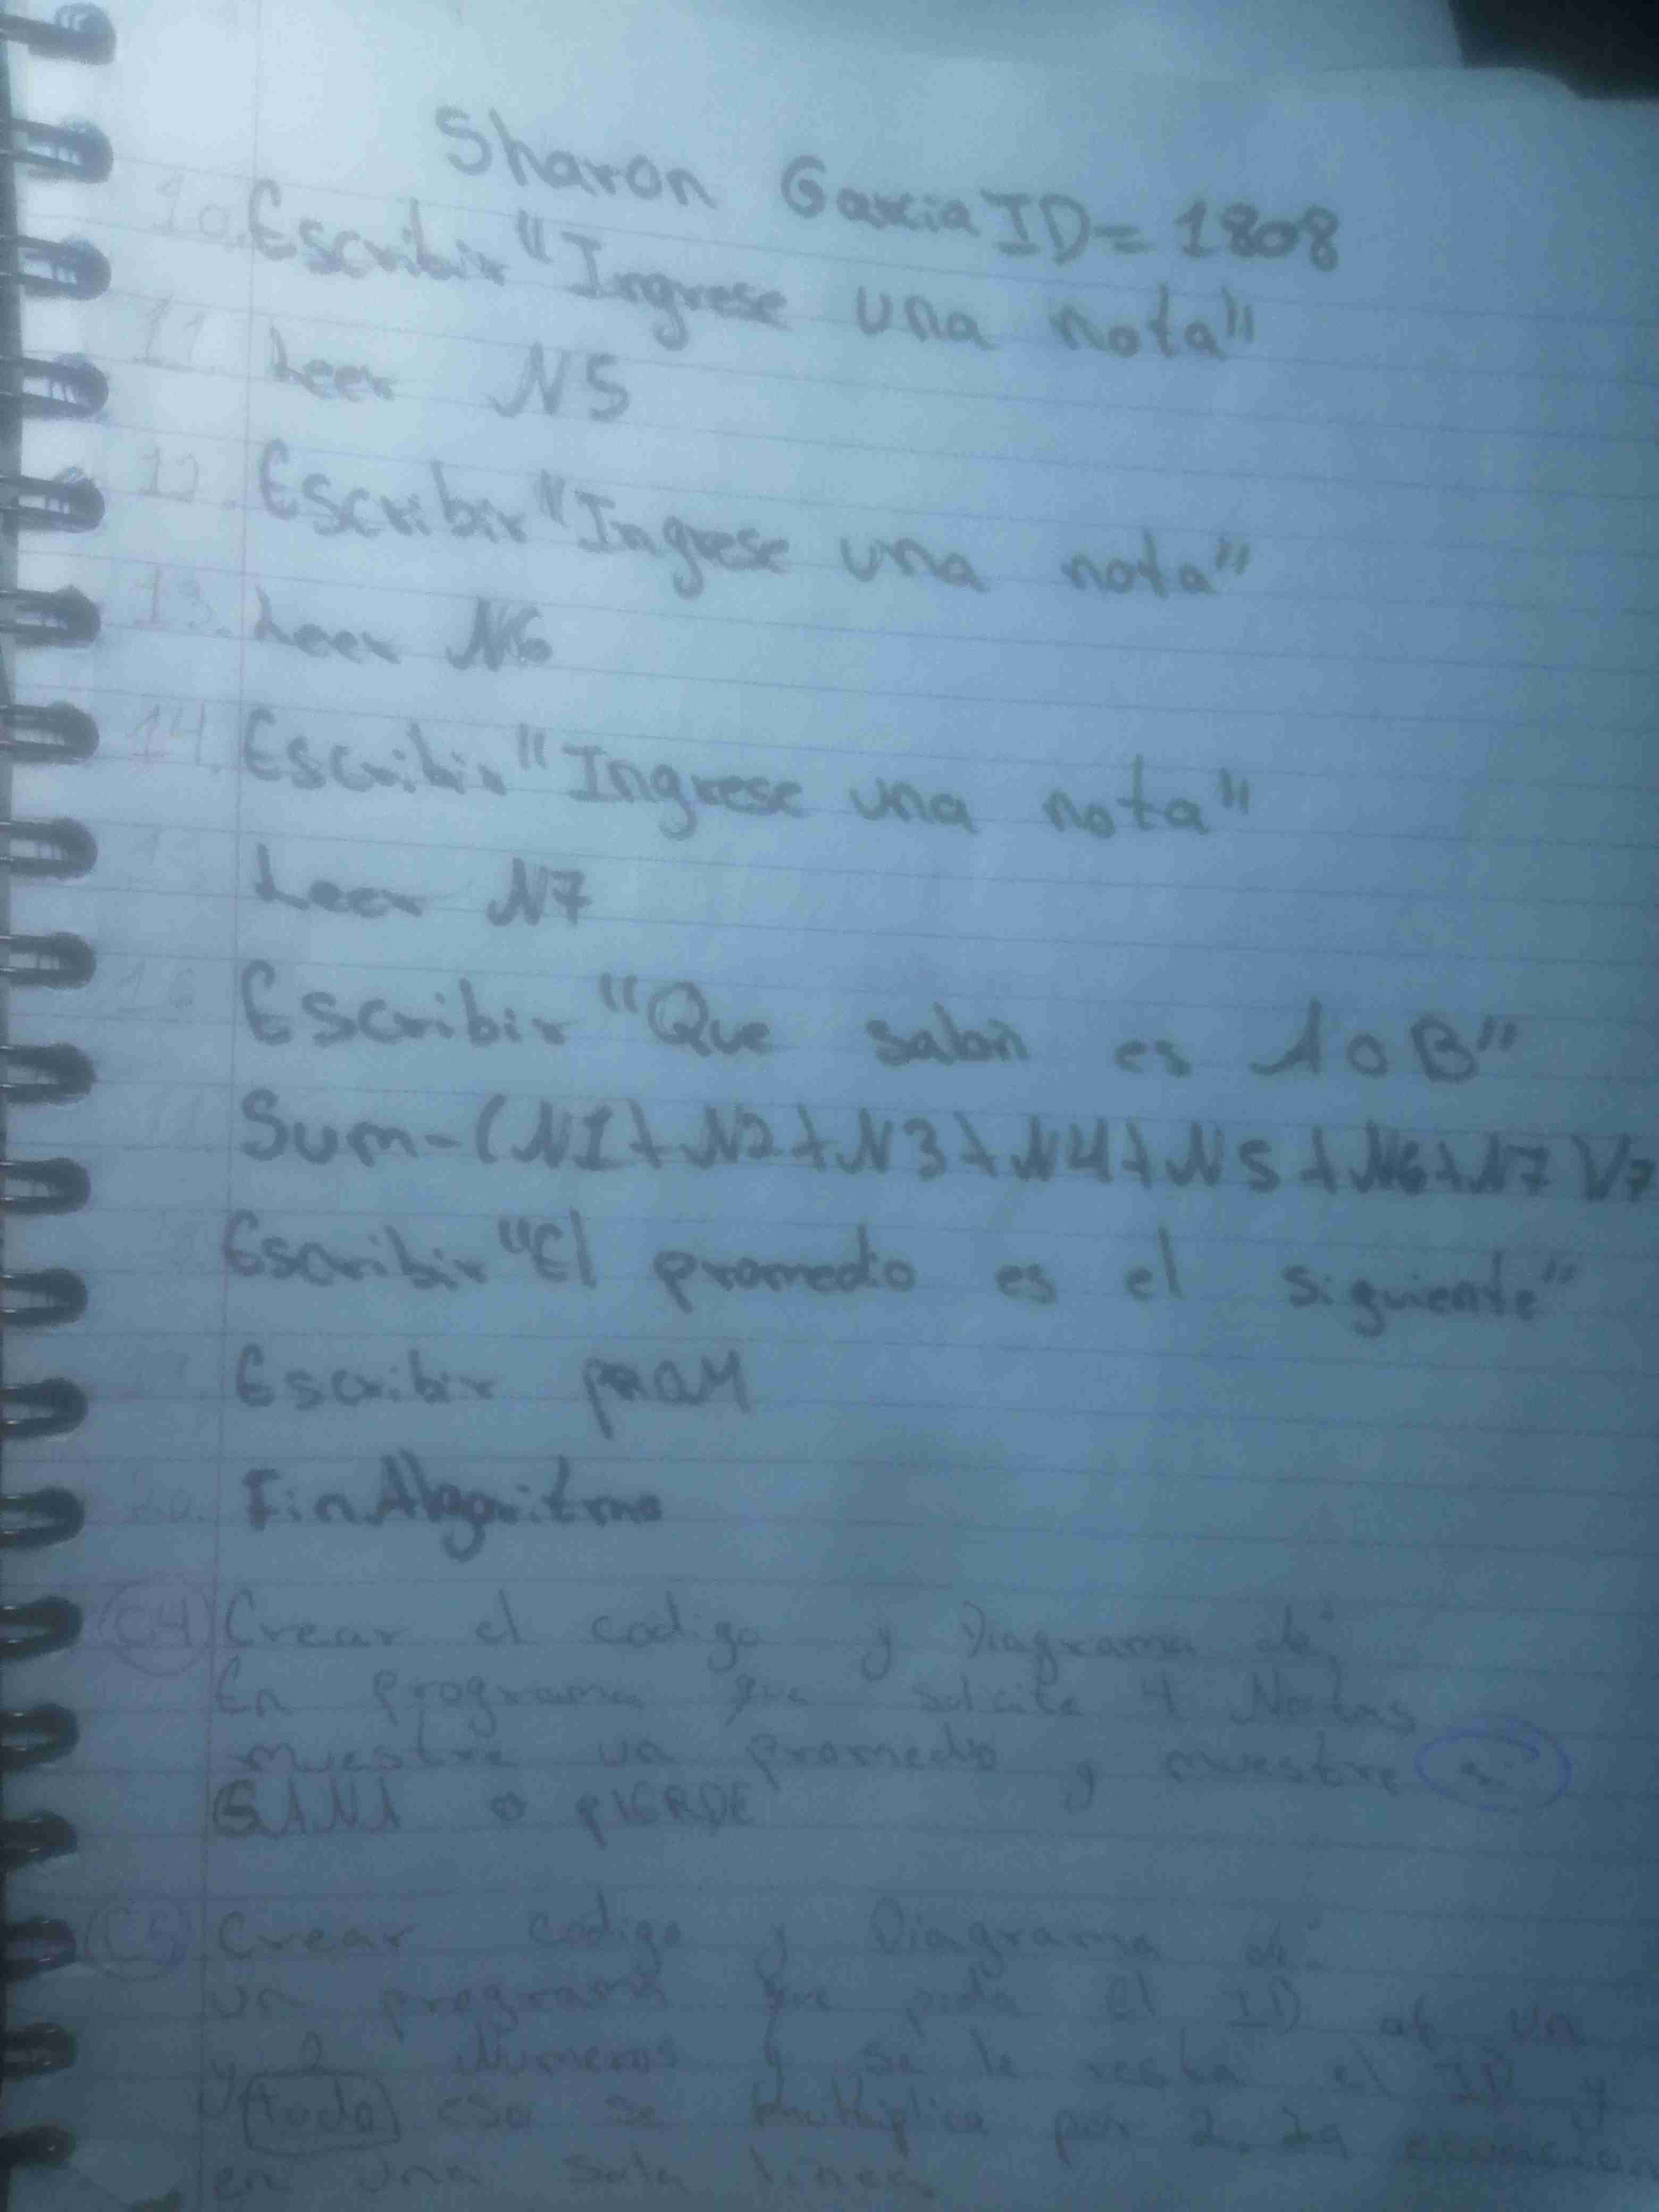 Sharon Garcia ID= 1808
10. Escribir "Ingrese una nota"
11. Leer N5
12. Escribir "Ingrese una nota"
13. Leer N6
14. Escribir "Ingrese una nota"
15 Leer N7
16 Escribir "Que salon es A o B"
Sum-(N1+N2+N3+N4+N5+N6+N7)/7
Escribir "El promedio es el siguiente"
Escribir prom
20. FinAlgoritmo
C4) Crear el codigo y Diagrama de
En programa que solicite 4 Notas
muestre un promedio y muestre si
GANA o PIERDE
C5) Crear codigo y Diagrama de:
un programa que pida el ID de un
y 2 Numeros y se le resta el ID y
todo eso se multiplica por 2. la
en una sola linea